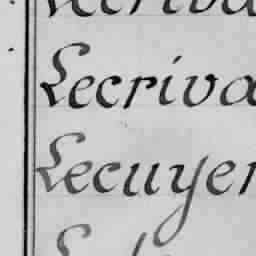 Lecriva
Lecuyer